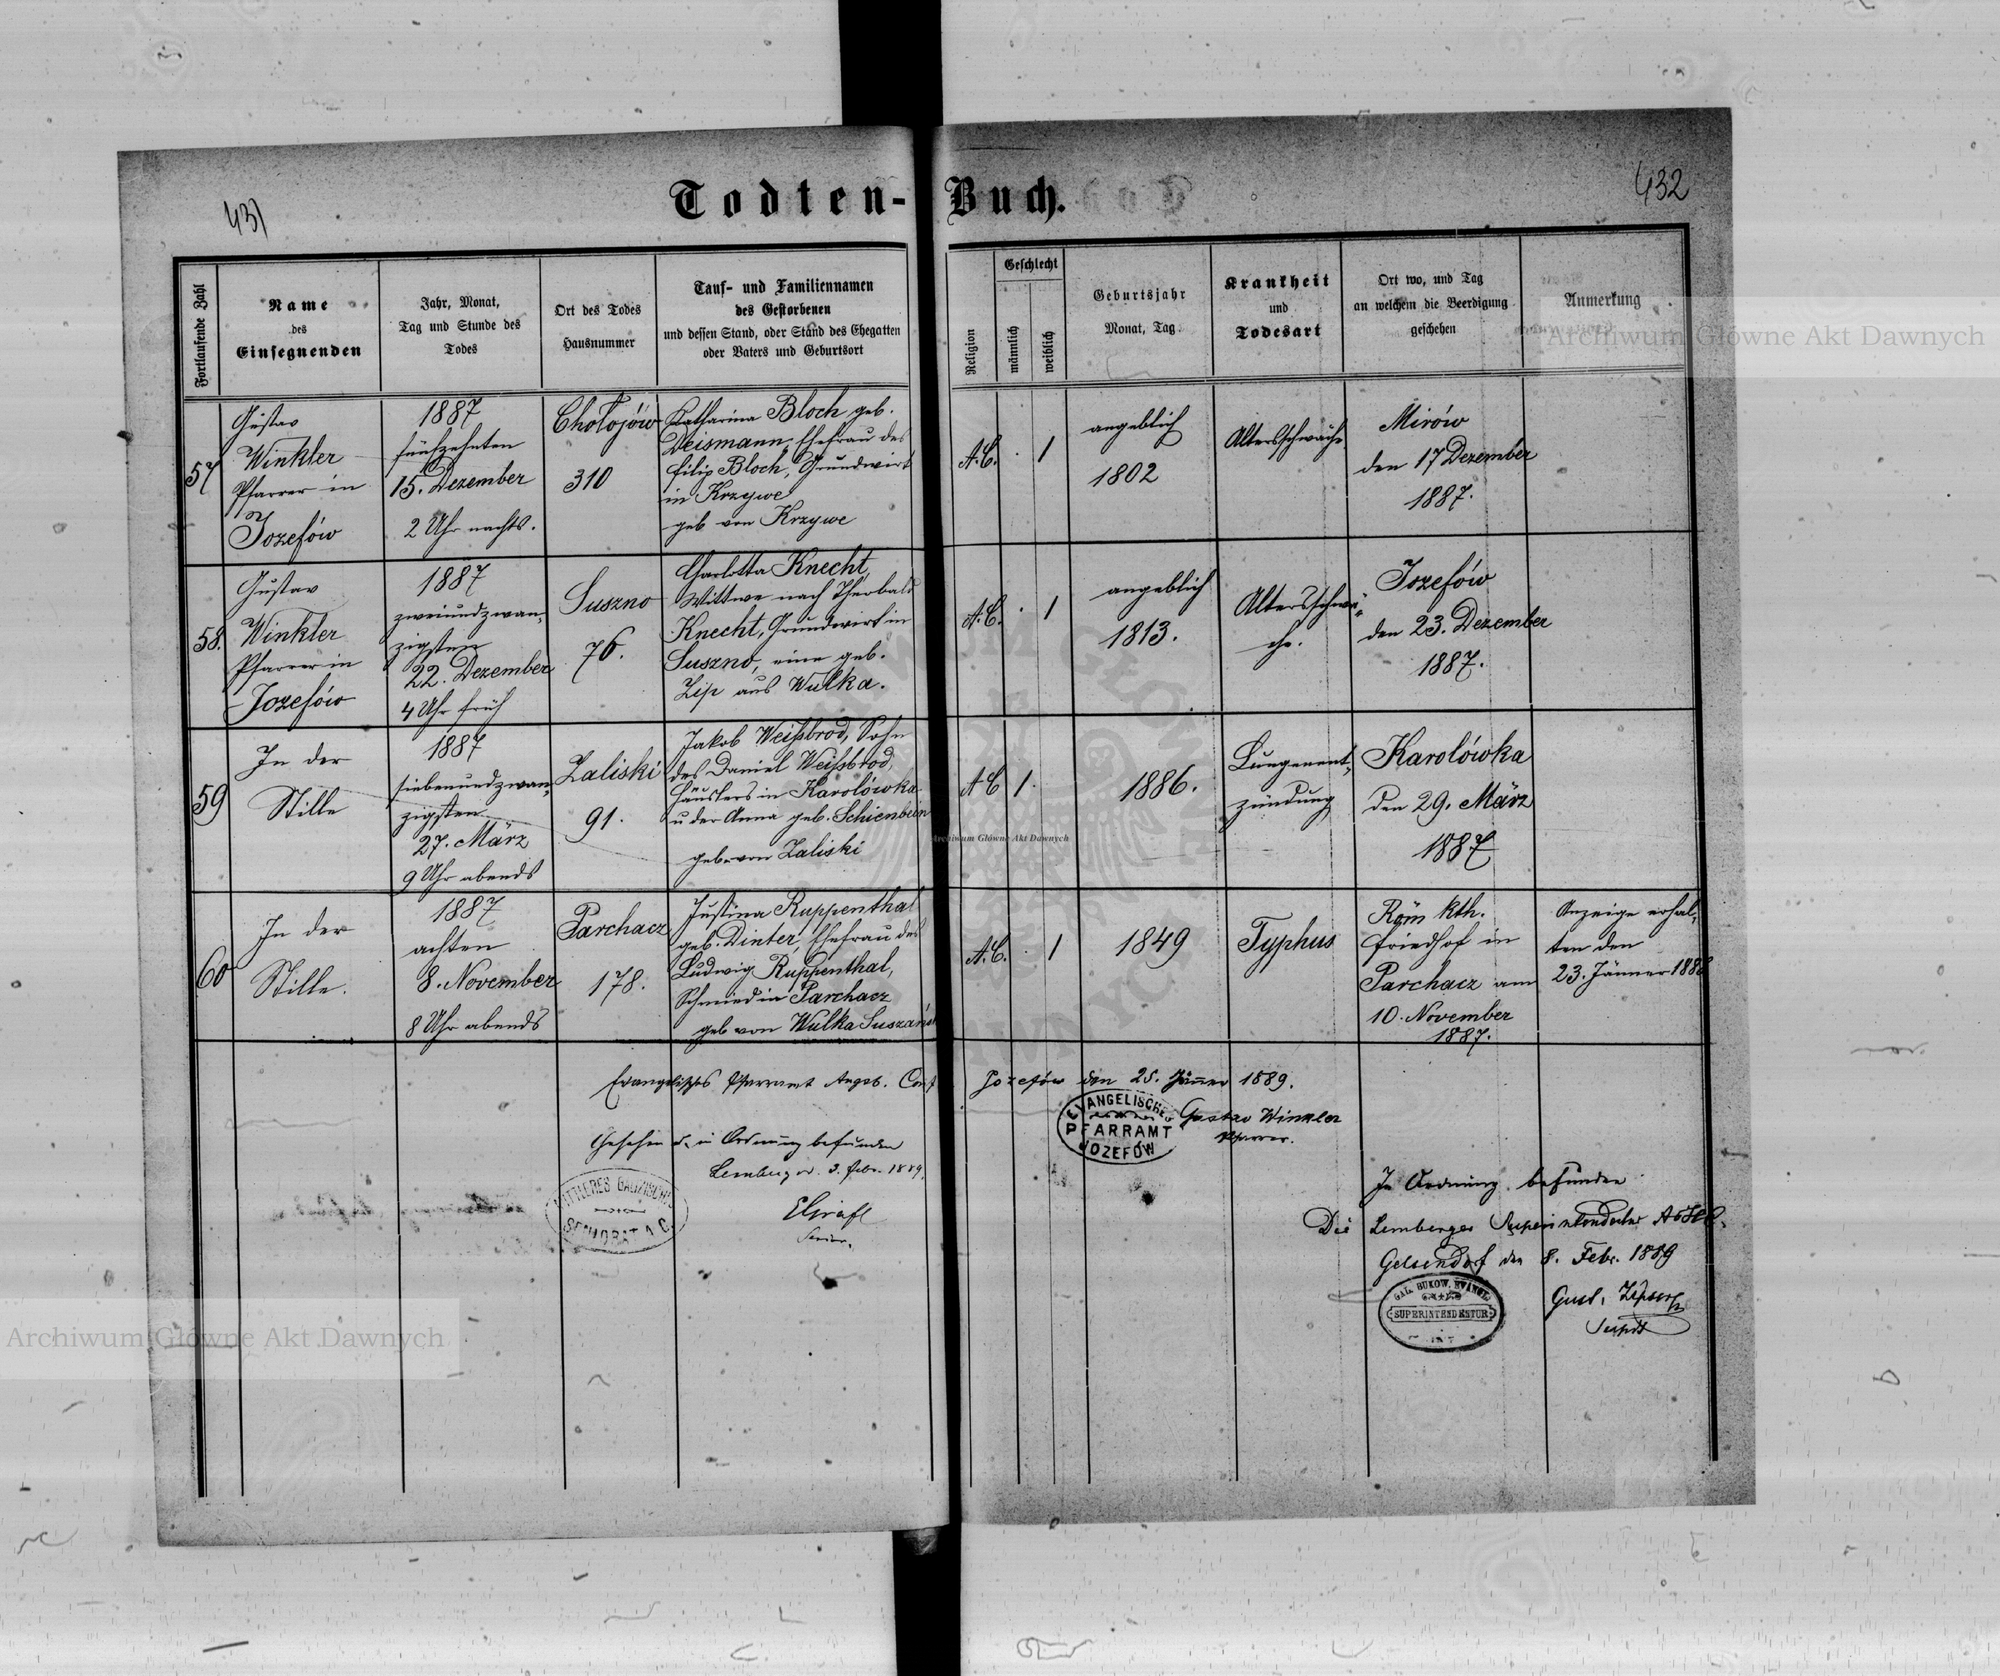 431
432
Todten-Buch.
Fortlaufende Zahl
Name
des
Einsegnenden
Jahr, Monat,
Tag und Stunde des
Todes
Ort des Todes
Hausnummer
Tauf- und Familiennamen
des Gestorbenen
und dessen Stand, oder Stand des Ehegatten
oder Vaters und Geburtsort
Religion
Geschlecht
männlich
weiblich
Geburtsjahr
Monat, Tag
Krankheit
und
Todesart
Ort wo, und Tag
an welchem die Beerdigung
geschehen
Anmerkung
57
Gustav
Winkler
Pfarrer in
Jozefów
1887
fünfzehnten
15. Dezember
2 Uhr nachts.
Chołojów
310
Katharina Bloch geb.
Deismann, Ehefrau des
Filip Bloch, Grundwirt
in Krzywe
geb von Krzywe
A.C.
1
angeblich
1802
Altersschwäche
Mirów
den 17 Dezember
1887.
58.
Gustav
Winkler
Pfarrer in
Jozefów
1887
zweiundzwan-
zigsten
22. Dezember
4 Uhr früh
Suszno
76.
Charlotta Knecht,
Wittwe nach Therbald
Knecht, Grundwirt in
Suszno, eine geb.
Zip aus Wulka.
A.C.
1
angeblich
1813.
Altersschwä-
che.
Jozefów
den 23. Dezember
1887.
59
In der
Stille
1887
siebenundzwan-
zigsten
27. März
9 Uhr abends
Zaliski
91.
Jakob Weißbrod, Sohn
des Daniel Weißbrod,
Häuslers in Karolówka
u der Anna geb. Schienbein
geb. von Zaliski
A C
1.
1886.
Lungenent-
zündung
Karolówka
den 29. März
1887
60
In der
Stille.
1887
achten
8. November
8 Uhr abends
Parchacz
178.
Justina Ruppenthal
geb. Dinter, Ehefrau des
Ludwig Ruppenthal,
Schmied in Parchacz
geb von Wulka Suszańs
A.C.
1
1849
Typhus
Röm kth.
Friedhof in
Parchacz am
10. November
1887.
Anzeige erhal-
ten den
23. Jänner 1888
Evangelisches Pfarramt Augsb. Conf. Jozefów den 25. Jänner 1889.
EVANGELISCHES
PFARRAMT
JOZEFÓW
Gustav Winkler
Pfarrer.
Gesehen u. in Ordnung befunden
Lemberg d. 3. Febr. 1889.
MITTLERES GALIZISCHES
SENIORAT A.C.
Senior.
In Ordnung befunden
Die Lemberger Superintendentur
Gelsendorf den 8. Febr. 1889
GAL. BUKOW. EVANGL.
SUPERINTENDENTUR
Gust. Zipser
Supdt
Archiwum Główne Akt Dawnych
Archiwum Główne Akt Dawnych
Archiwum Główne Akt Dawnych